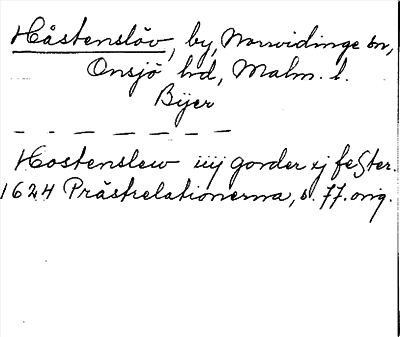 Håstenslöv, by, Norrvidinge sn,
Onsjö hd, Malm. l.
Bijer
Hostenslew iiij gorder xj fester.
1624 Prästrelationerna, s. 77. orig.